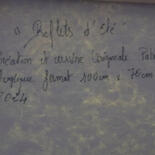 " Reflets d'été "
Création et œuvre originale
Acrylique format 100cm x 70cm
2024